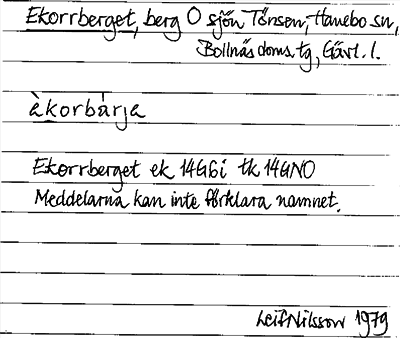 Ekorrberget, berg O sjön Tönsen, Hanebo sn,
Bollnäs doms. tg, Gävl. l.
èkorbárja
Ekorrberget ek 14G6i tk 14GNO
Meddelarna kan inte förklara namnet.
Leif Nilsson 1979